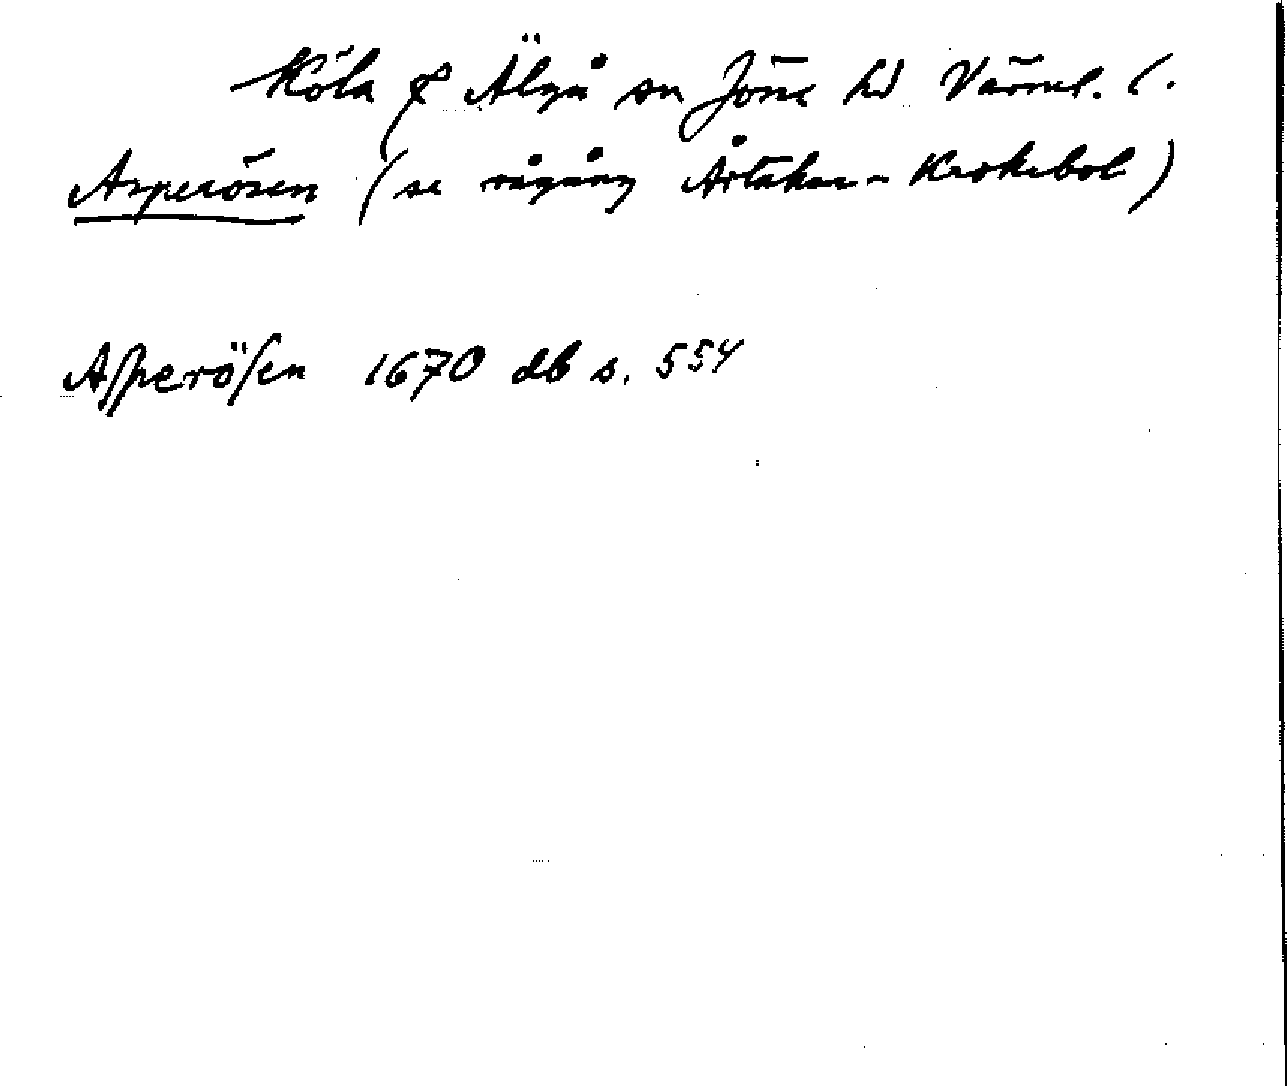 Köla o Älgå sn Jösse hd Värml. l.
Asperösen (se rågång Årtakan - Krokebol)
Asperösen 1670 db s. 554